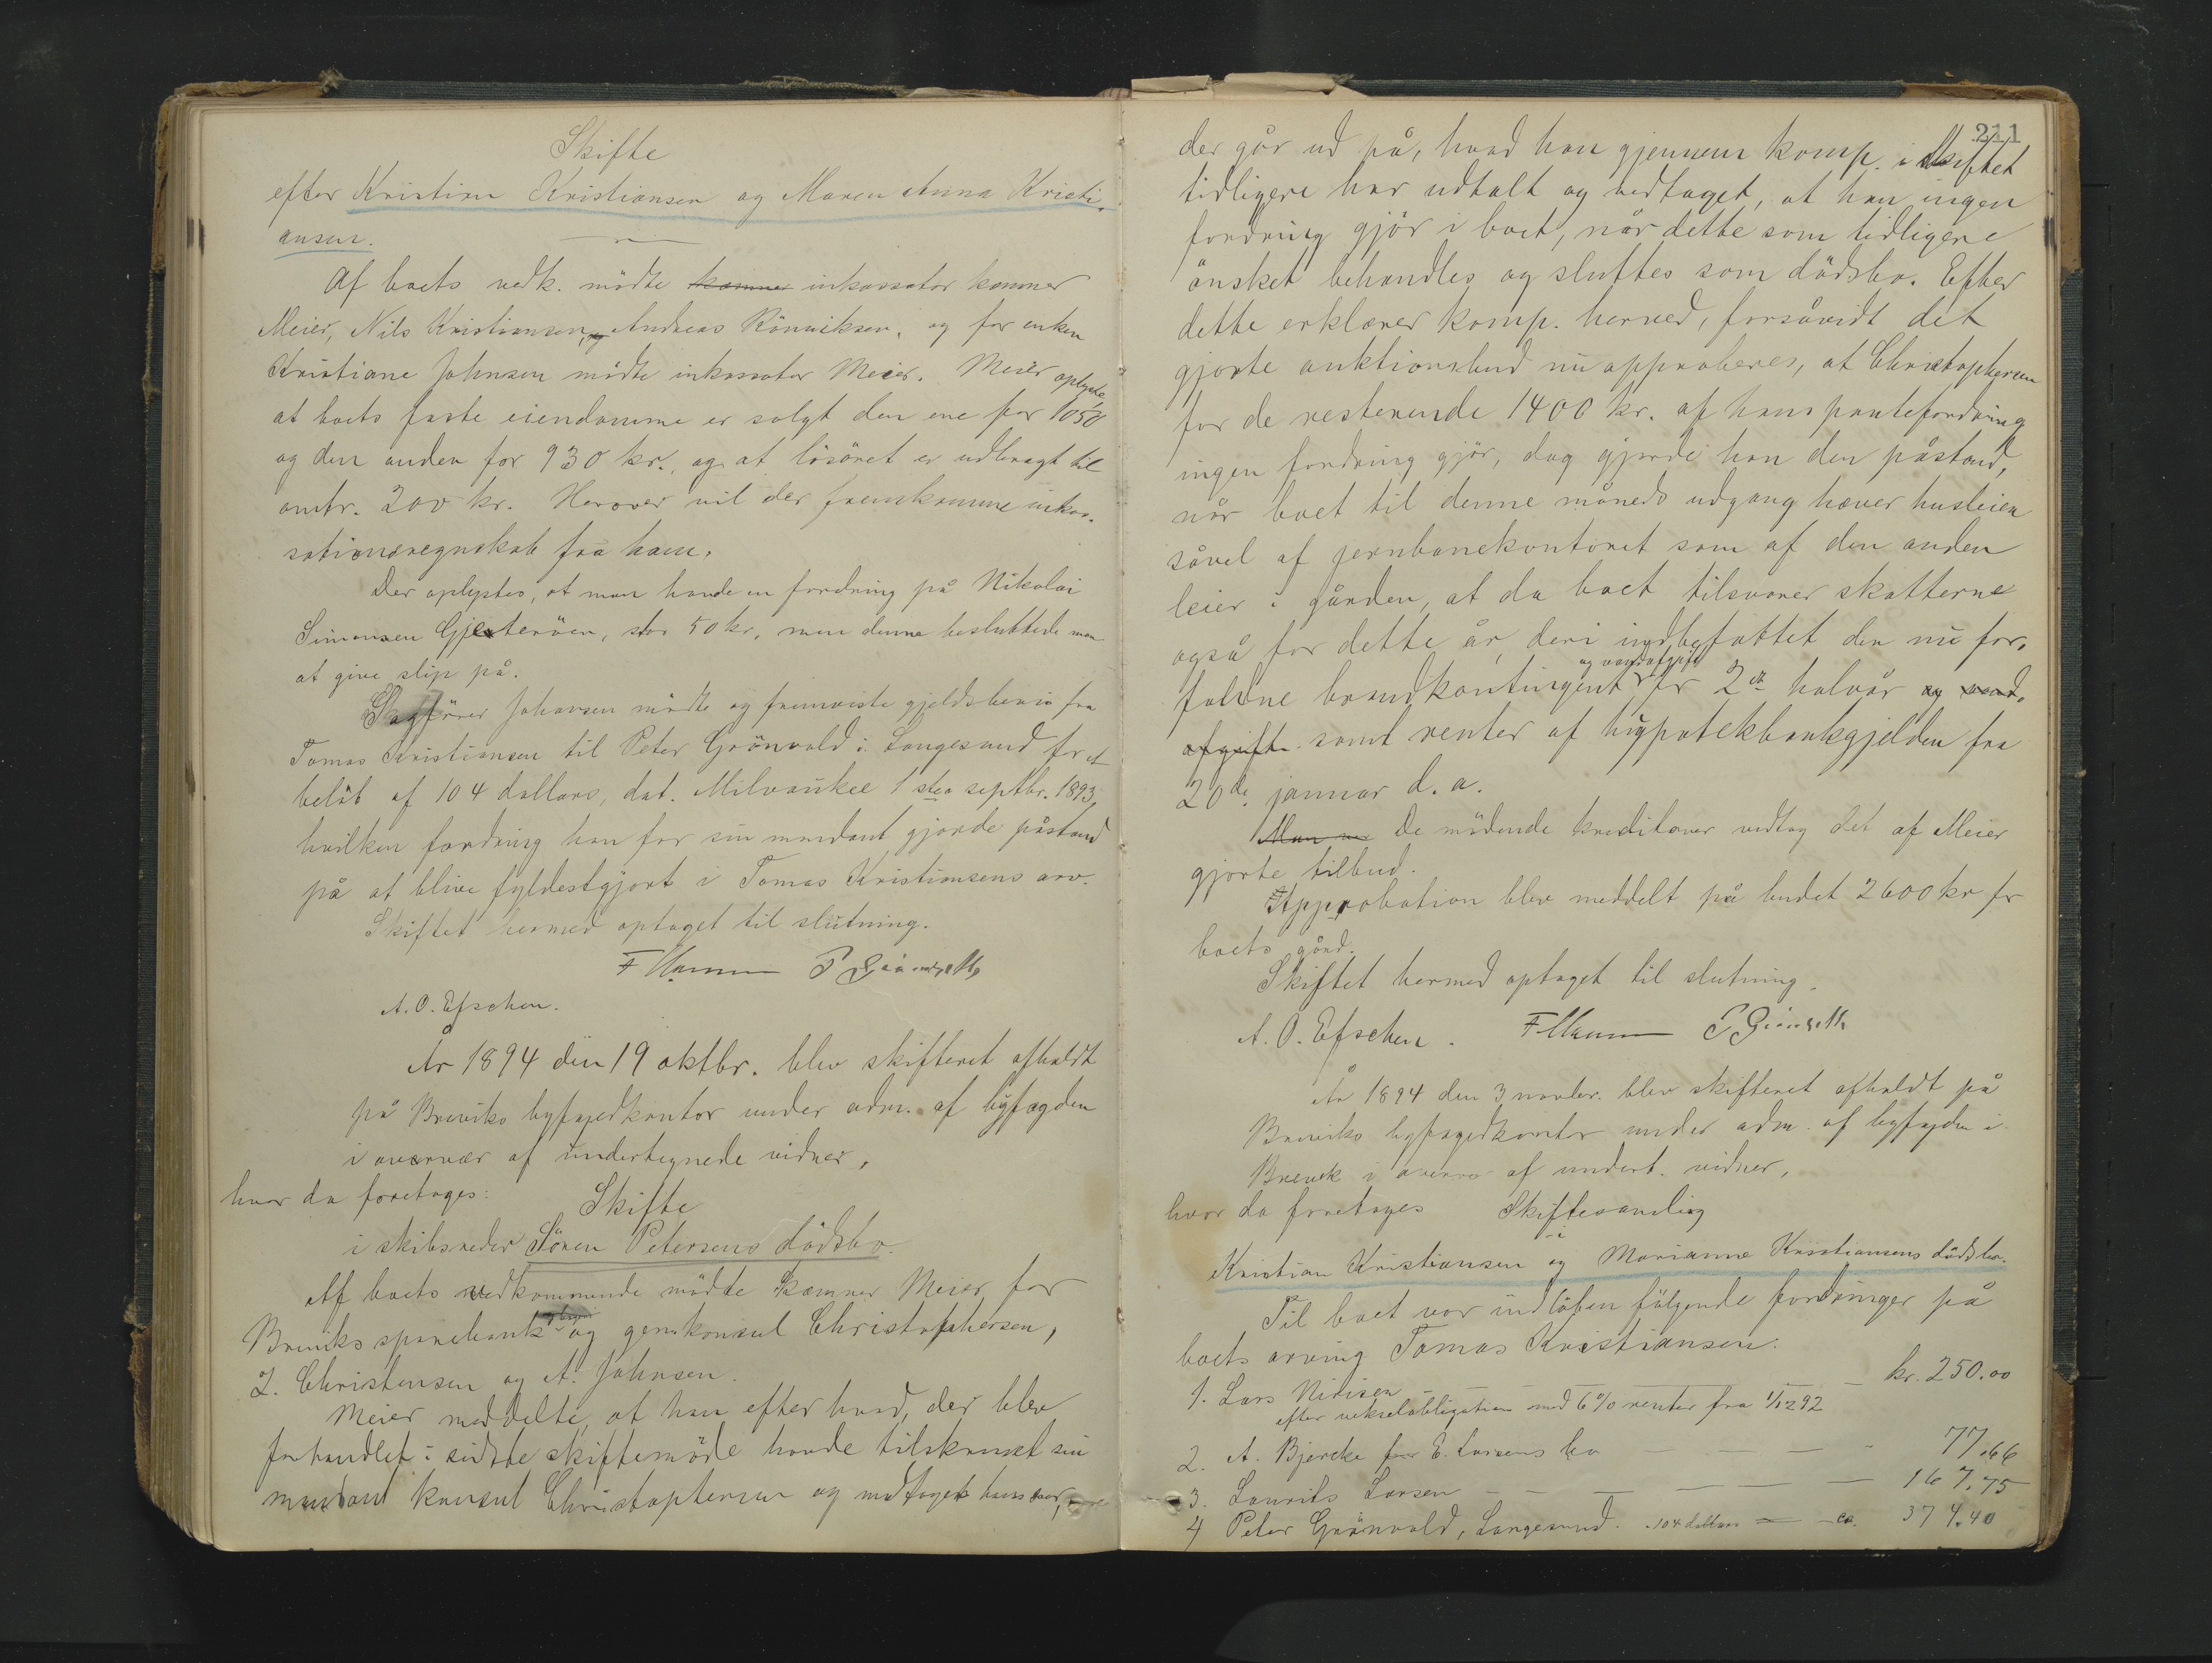 Skifte
efter Kristian Kristiansen og Maren Anna Kristi-
ansen.
Af boets vedk. mödte kæmner inkassator kæmner
Meier, Nils Kristiansen, og Andreas Rönniksen, og for enken
Kristiane Johnsen mödte inkassator Meier. Meier oplyste,
at boets faste eiendomme er solgt den ene for 1050
og den anden for 930 kr., og at lösöret er udbragt til
omtr. 200 kr. Herover vil der fremkomme inkas-
sationsregnskab fra ham.
Der oplystes, at man havde en fordring på Nikolai
Simonsen Gjesteröen, stor 50 kr, men denne besluttede man
at give slip på.
Sagförer Johansen mödte og fremviste gjeldsbevis fra
Tomas Kristiansen til Peter Grönvold i Langesund for et
belöb af 104 dollars, dat. Milvaukee 1sten septbr. 1893,
hvilken fordring han for sin mandant gjorde påstand
på at blive fyldestgjort i Tomas Kristiansens arv.
Skiftet hermed optaget til slutning.
A. O. Efschen.
År 1894 den 19 oktbr. blev skifteret afholdt
på Breviks byfogedkontor under adm. af byfogden
i overvær af undertegnede vidner,
hvor da foretoges:
Skifte
i skibsreder Sören Petersens dödsbo.
Af boets vedkommende mödte kæmner Meier for
Breviks sparebank og gen. konsul Christophersen,
J. Christensen og A. Johnsen.
Meier meddelte, at han efter hvad, der blev
forhandlet i sidste skiftemöde havde tilskrevet sin
mandant konsul Christophersen og modtaget hans svar,
211
der går ud på, hvad han gjennem komp. i skiftet
tidligere har udtalt og vedtaget, at han ingen
fordring gjör i boet, når dette som tidligere
önsket behandles og sluttes som dödsbo. Efter
dette erklærer komp. herved, forsåvidt det
gjorte auktionsbud nu approberes, at Christophersen
for de resterende 1400 kr. af hans pantefordring
ingen fordring gjör, dog gjorde han den påstand,
når boet til denne måneds udgang hæver husleien
såvel af jernbanekontoret som af den anden
leier i gården, at da boet tilsvarer skatterne
også for dette år, deri indbefattet den nu for-
faldne brandkontingent og vandafgift for 2det halvår og vand-
afgift samt renter af hypotekbankgjelden fra
20de januar d. a.
De mödende kreditorer vedtog det af Meier
gjorte tilbud.
Approbation blev meddelt på budet 2600 kr for
boets gård.
Skiftet hermed optaget til slutning.
A. O. Efschen.
År 1894 den 3 novbr. blev skifteret afholdt på
Breviks byfogedkontor under adm. af byfogden i
Brevik i overvær af undert. vidner,
hvor da foretoges Skiftesamling
i
Kristian Kristiansen og Marianne Kristiansens dödsbo.
Til boet var indlöben fölgende fordringer på
boets arving Tomas Kristiansen:
1. Lars Nirisen kr. 250.00
efter vekselobligation med 6% renter fra 1/12 92
2. A. Bjercke for E. Larsens bo 77.66
3. Laurits Larsen 167.75
4 Peter Grönvold, Langesund. 104 dollars ca. 374.40